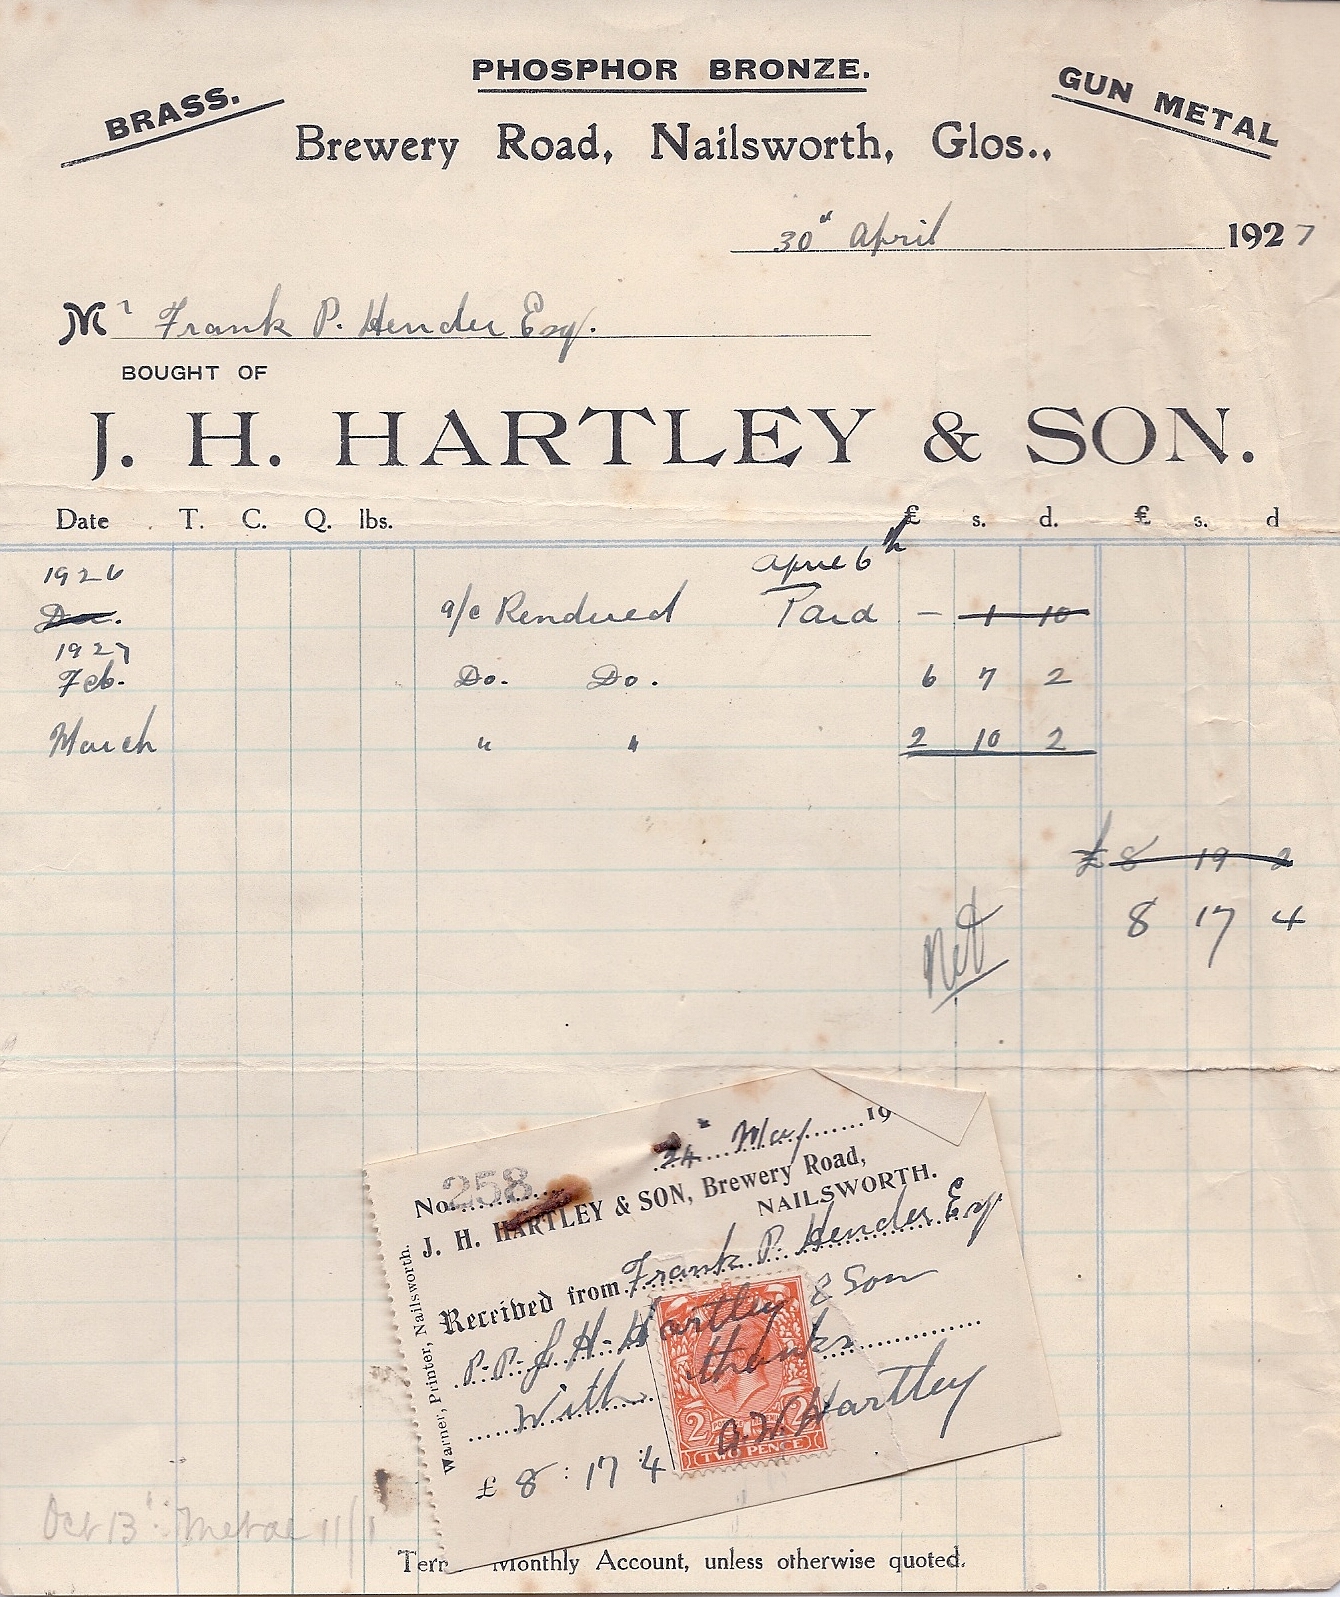 BRASS.
PHOSPHOR BRONZE.
GUN METAL
Brewery Road, Nailsworth, Glos.,
30" April 1927
Mr Frank P. Hender Esq.
BOUGHT OF
J. H. HARTLEY & SON.
Date T. C. Q. lbs. £ s. d. £ s. d
1926 April 6th
Dec. a/c Rendered Paid – 1 10
1927
Feb. Do. Do. 6 7 2
March " " 2 10 2
£ 8 19 2
Net 8 17 4
24" May 19
No. 258
J. H. HARTLEY & SON, Brewery Road,
NAILSWORTH.
Received from Frank P. Hender Esq
P.P. J. H. Hartley & Son
With thanks
G. W. Hartley
£ 8 : 17 : 4
2 2
TWO PENCE
Warner, Printer, Nailsworth.
Oct 13 Metal 11/1
Ter Monthly Account, unless otherwise quoted.